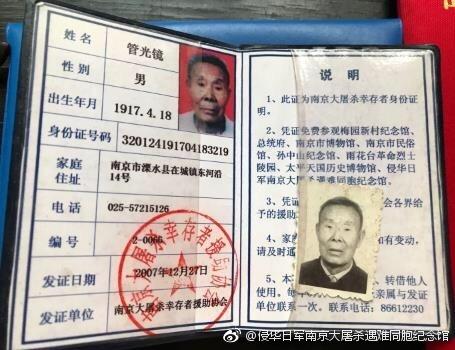 姓名 管光镜
性别 男
出生年月 1917.4.18
身份证号码 320124191704183219
家庭 南京市溧水县在城镇东河沿
住址 14号
电话 025-57215126
编号 2-0066
发证日期 2007年12月27日
发证单位 南京大屠杀幸存者援助协会
南京大屠杀幸存者援助协会
说明
1、此证为南京大屠杀幸存者身份证
明。
2、凭证免费参观梅园新村纪念馆、
总统府、南京市博物馆、南京市民俗
馆、孙中山纪念馆、雨花台革命烈士
陵园、太平天国历史博物馆、侵华日
军南京大屠杀遇难同胞纪念馆。
3、凭证 会各界给
予的援助
4、家庭 有变动,
请及时通
5、本 转借他人
使用。 亲属与发证
单位联系一次。联系电话:86612230
@侵华日军南京大屠杀遇难同胞纪念馆